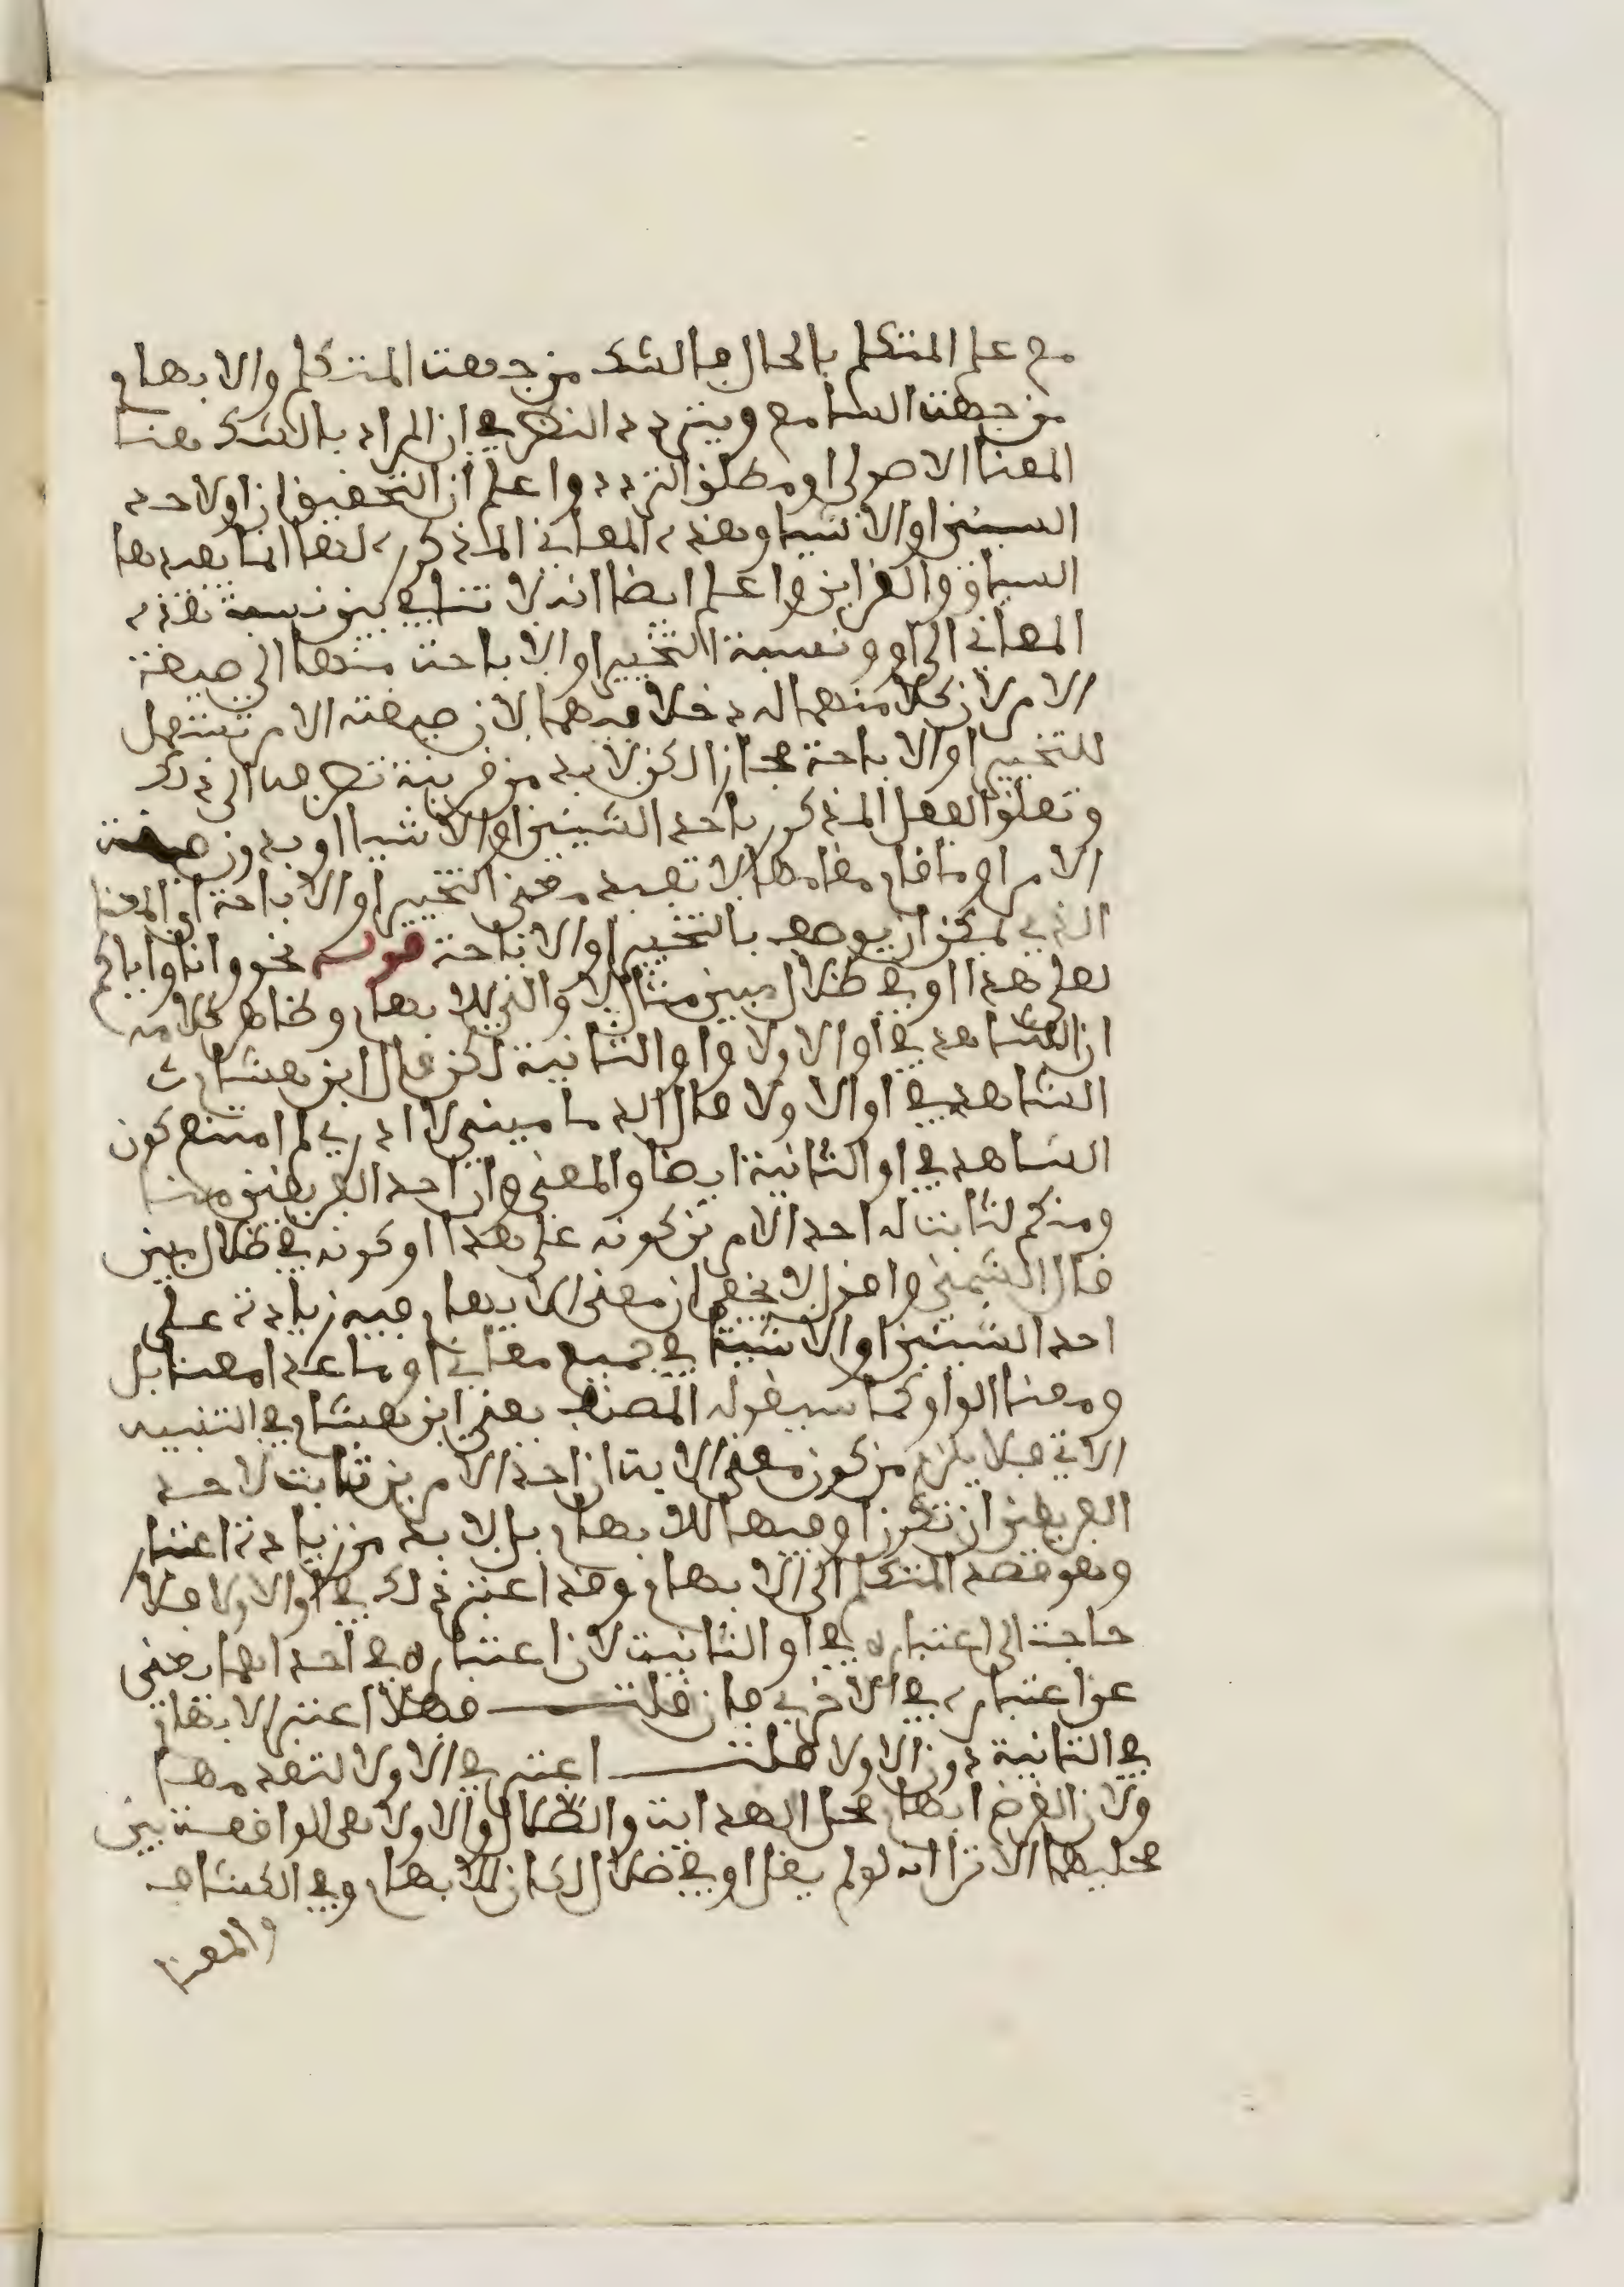 مع علم المتكلم بالحال فالشك من جهت المتكلم والابهام
من جهت السامع ويتردد النظر في ان المراد بالشك هنا
المعنا الاصولي او مطلق التردد واعلم ان التحقيق ان او لاحد
الشيئين او الاشيا وهذه المعاني المذكوره لها انما يفيدها
السياق والقراين واعلم ايضا انه لا تنافي بين نسبة هذه
المعاني الى او ونسبة التخيير او الاباحت منها الى صيغة
الامر لان كلا منهما له دخلا فيهما لان صيغت الامر تستعمل
للتخيير او الاباحة مجازا لكن لابد من قرينة تظم معها الى ذلك
وتعلق الفعل المذكور باحد الشيئين او الاشيا او بدون صيغت
الامر او ما قام مقامها لا تفيد معنى التخيير او الاباحة او المعنا
الذي يمكن ان يوصف بالتخيير او الاباحة قوله نحو وانا واياكم
لعلى هدا او في ظلال مبين مثال للا والذي للابهام وظاهر كلامه
ان الشاهد في او الاولا واو الثانية لكن قال ابن هشام
الشاهد في او الاولا قال الدماميني لا ادري لم امتنع كون
الشاهد في او الثانية ايضا والمعنى وان احد الفريقين منا
ومنكم لثابت له احد الامرين كونه على هدا او كونه في ظلال مبين
قال الشمني واقول لا يخفى ان معنى الابهام فيه زيادة على
احد الشيئين او الاشيا في جميع معاني او ما عدا معنا بل
ومعنا الواو كما سيقوله المصنف يعني ابن هشام في التنبيه
الاتي فلا يلزم من كون معنى الايت ان احد الامرين ثابت لاحد
الفريقين ان تكون او فيها للابهام بل لا بد من زيادة اعتبار
وهو قصد المتكلم الى الابهام وقد اعتبر ذلك في او الاولا فلا
حاجت الى اعتباره في او الثانيت لان اعتباره في احداهما يغني
عن اعتباره في الاخرى فان قلت فهلا اعتبر الابهام
في الثانية دون الاولا قلت اعتبر في الاولا لتقدمها
ولان الغرض ابهام محل الهدايت والظلال والاولا هي الواقعت بين
محليهما الا ترا انه لو لم يقل او في ضلال لكان للابهام وفي الكشاف
والمعنا